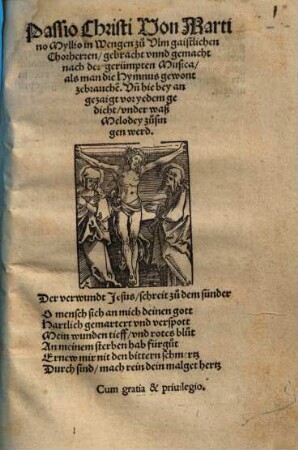 Passio Christi Von Marti
no Myllio in Wengen zů Ulm gaistlichen
Chorherren/ gebracht vnnd gemacht
nach der gerümpten Musica/
als man die Hymnus gewont
zebrauchē. Vñ hie bey an
gezaigt vor yedem ge
dicht/ vnder waß
Melodey zůsin
gen werd.
Der verwundt Jesus/ schreit zů dem sünder
O mensch sich an mich deinen gott
Hartlich gemartert vnd verspott
Mein wunden tieff/ vnd rotes blůt
An meinem sterben hab fürgůt
Ernew mir nit den bittern schmertz
Durch sünd/ mach rein dein malget hertz
Cum gratia & priuilegio.